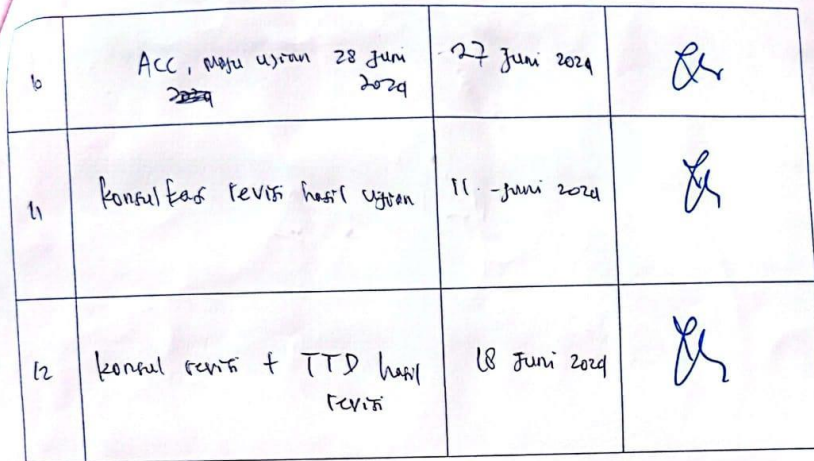 10
ACC, maju ujian 28 Juni
2024
27 Juni 2024
11
konsultasi revisi hasil ujian
11 - Juni 2024
12
konsul revisi + TTD hasil
revisi
18 Juni 2024